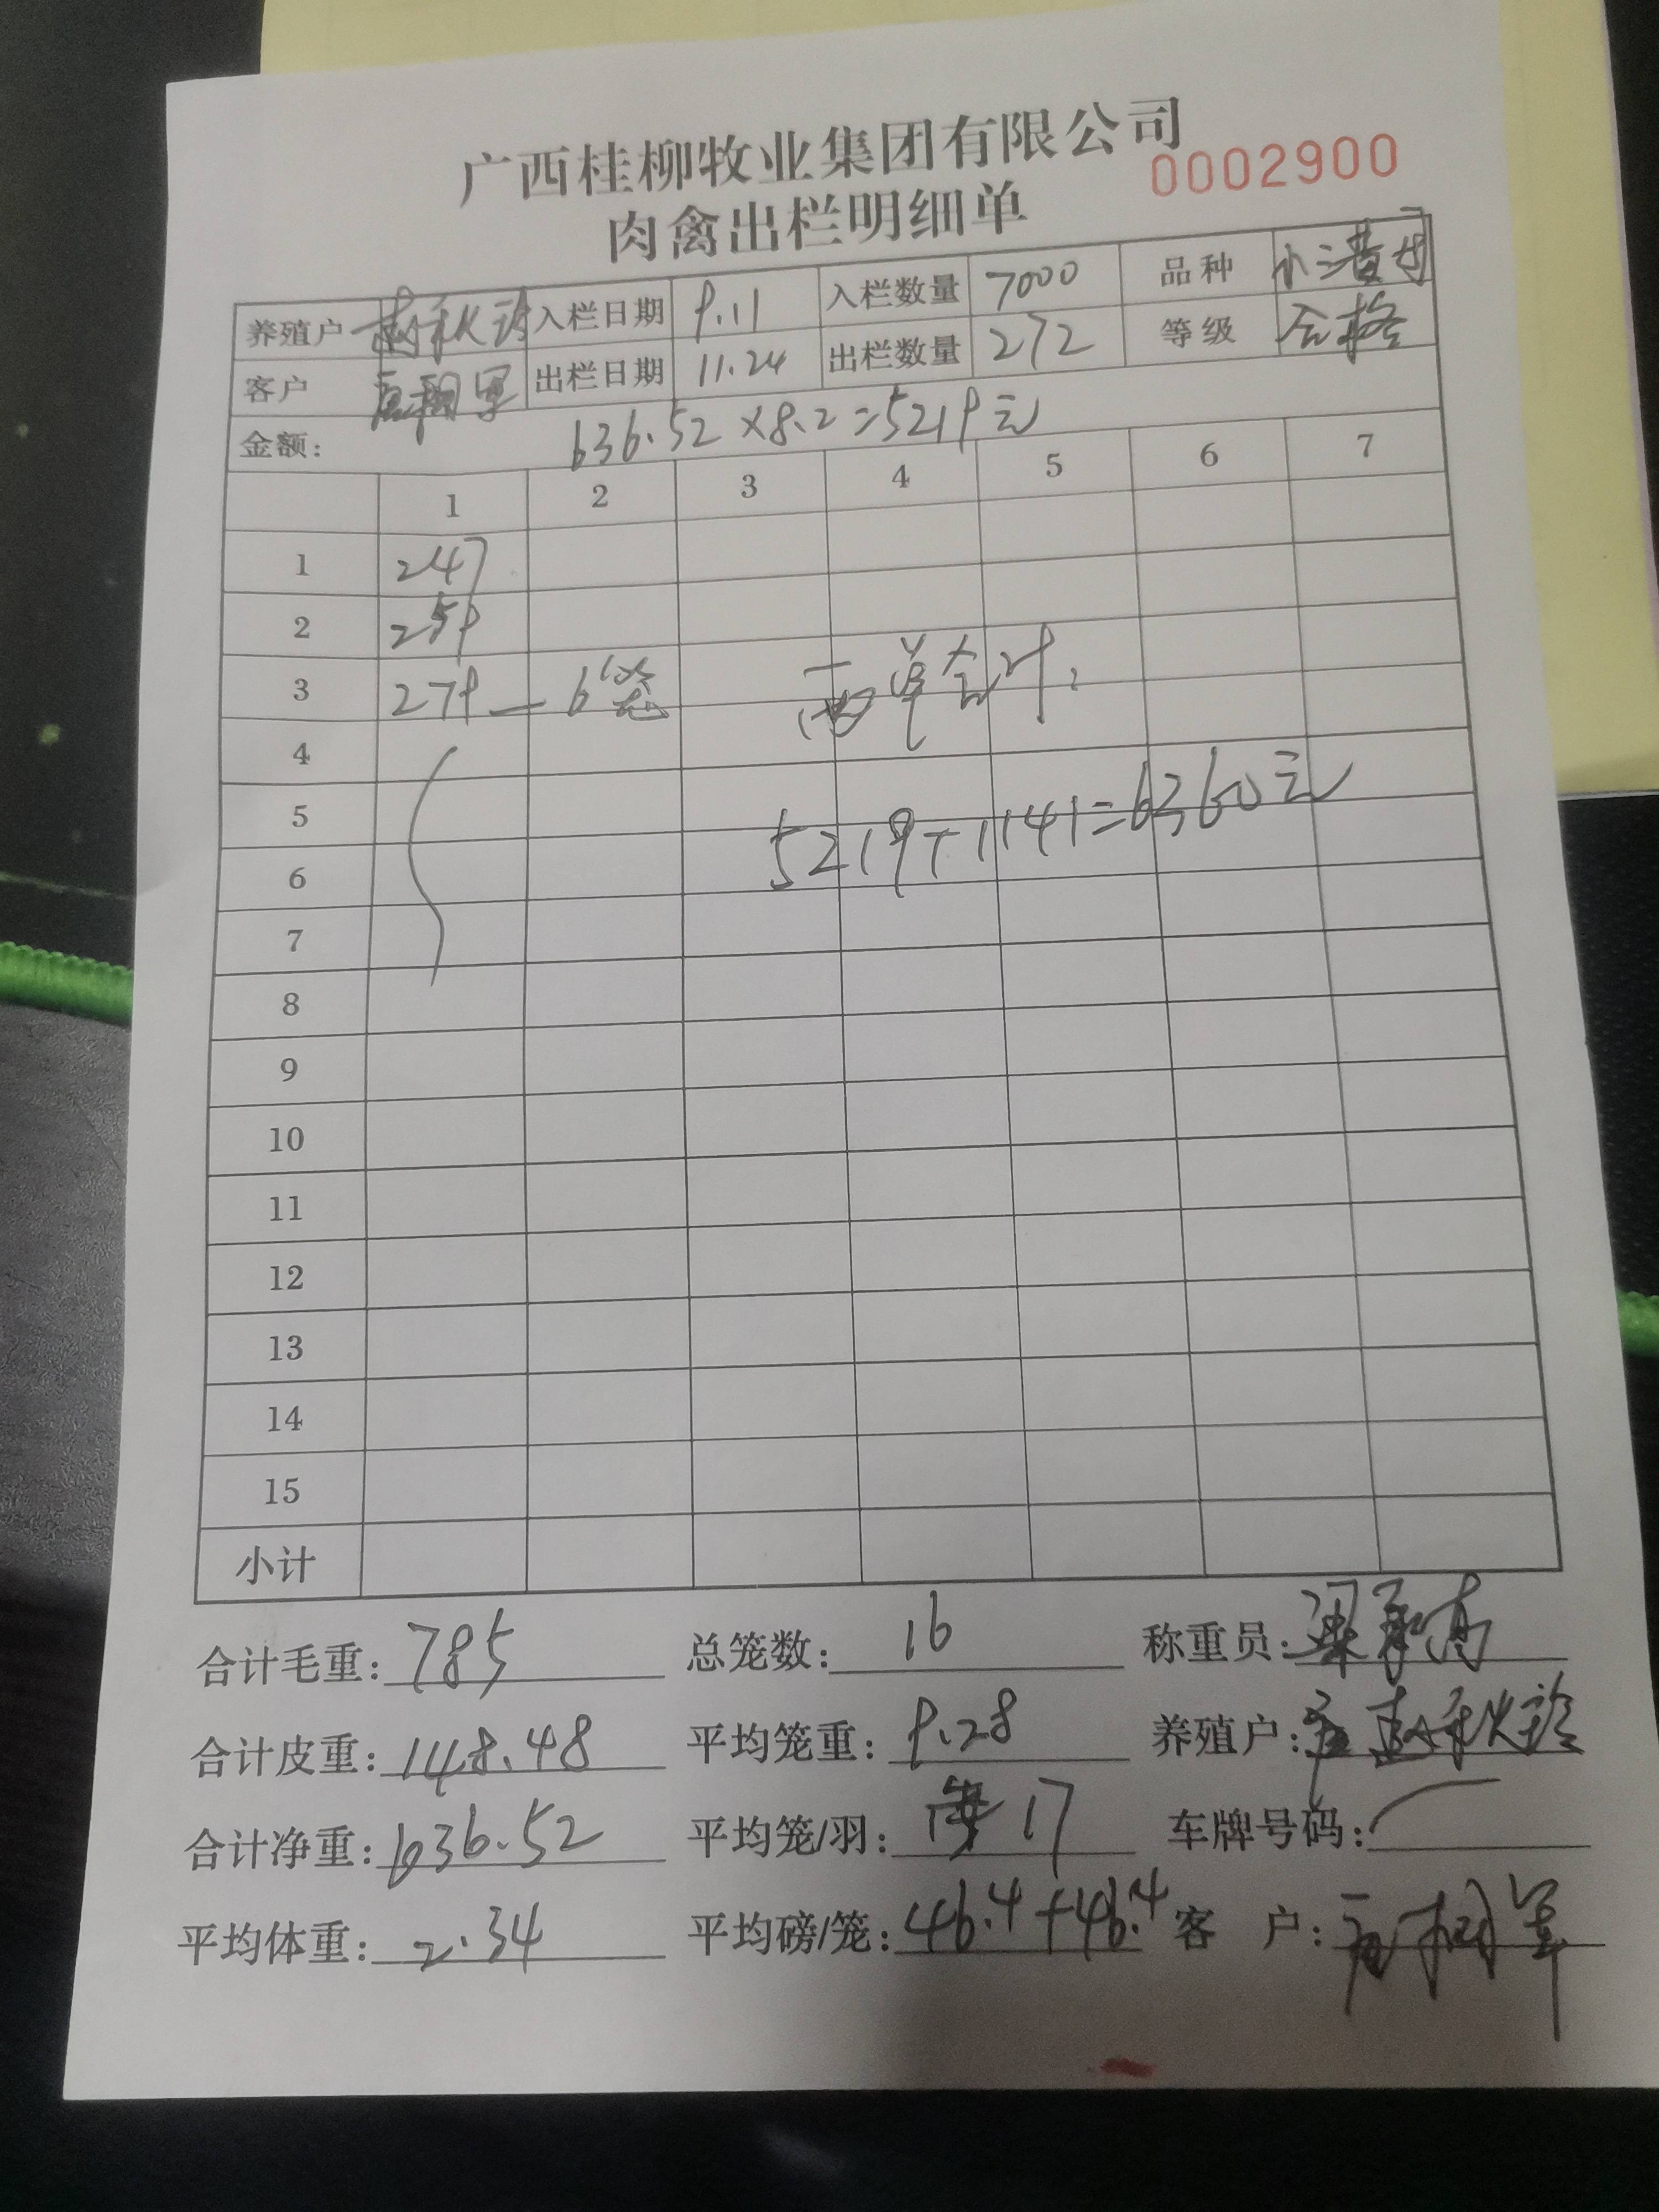 广西桂柳牧业集团有限公司
0002900
肉禽出栏明细单
养殖户 入栏日期 9.11 入栏数量 7000 品种
客户 出栏日期 11.24 出栏数量 272 等级 合格
金额: 636.52×8.2=5219元
1 2 3 4 5 6 7
1 247
2 259
3 279—6笼 两单合计:
4
5 5219+1141=6360元
6
7
8
9
10
11
12
13
14
15
小计
合计毛重: 785 总笼数: 16 称重员:
合计皮重: 148.48 平均笼重: 9.28 养殖户:
合计净重: 636.52 平均笼/羽: 17 车牌号码:
平均体重: 2.34 平均磅/笼: 46.4+46.4 客 户: